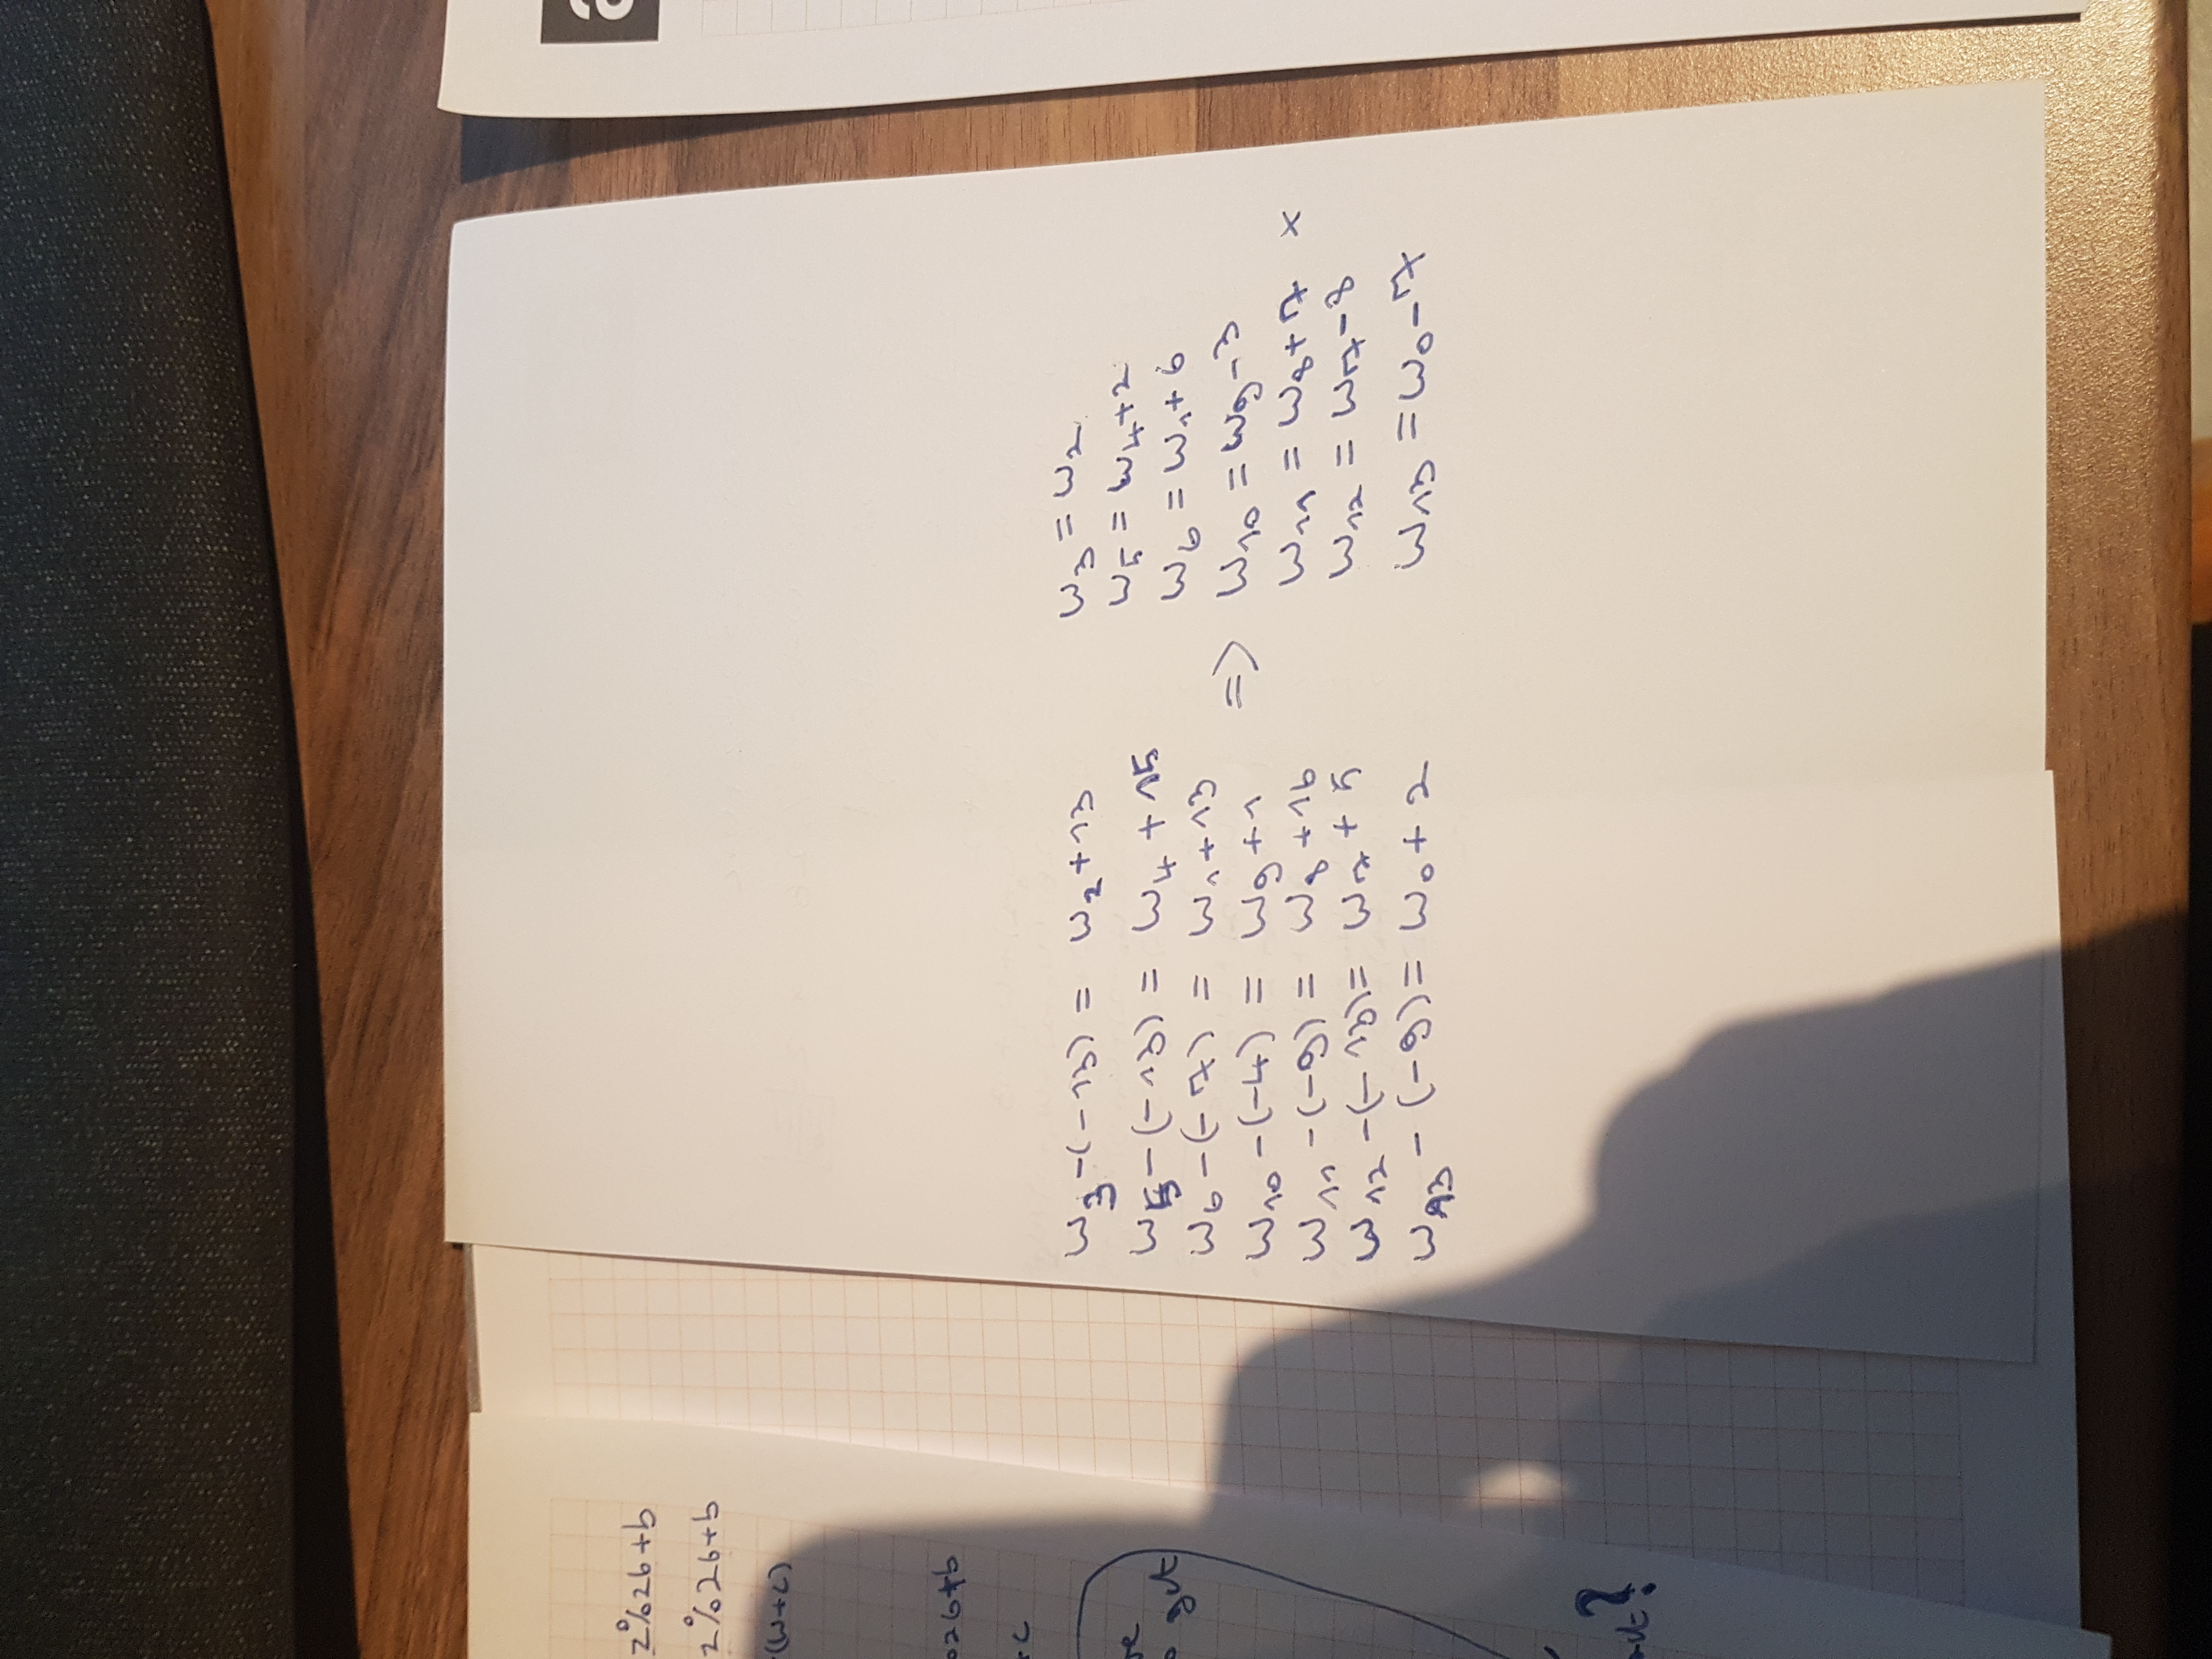 z%26+b
z%26+b
(w+c)
26+b
+c
get
?
w3-(-13) = w2+13
w5-(-13) = w4+15
w6-(-7) = w1+13
w10-(-4) = w9+1
w11-(-9) = w8+16
w12-(-13)= w7+5
w13-(-9)= w0+2
=>
w3=w2
w5=w4+2
w6=w1+6
w10=w9-3
w11=w8+7 x
w12=w7-8
w13=w0-7
a